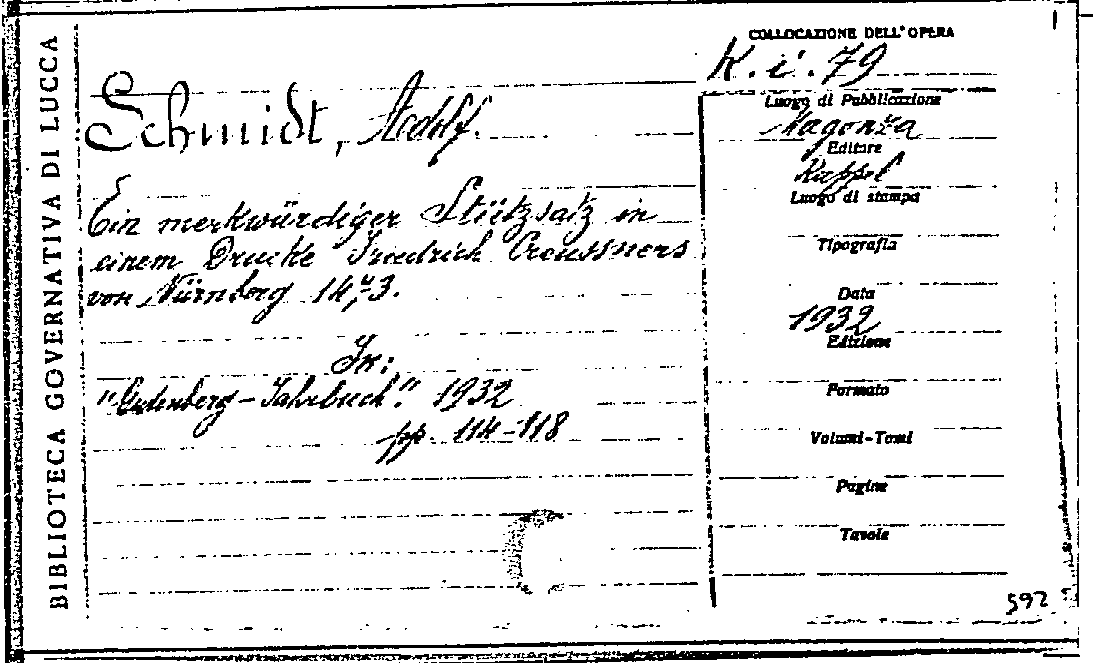 BIBLIOTECA GOVERNATIVA DI LUCCA
Schmidt, Adolf.
Ein merkwürdiger Stützsatz in
einem Drucke Friedrich Creussners
von Nürnberg
In:
"Gutenberg-Jahrbuch". 1932
pp. 114-118
COLLOCAZIONE DELL'OPERA
K. i. 79
Luogo di Pubblicazione
Magonza
Editore
Luogo di stampa
Tipografia
Data
1932
Edizione
Formato
Volumi-Tomi
Pagine
Tavole
592